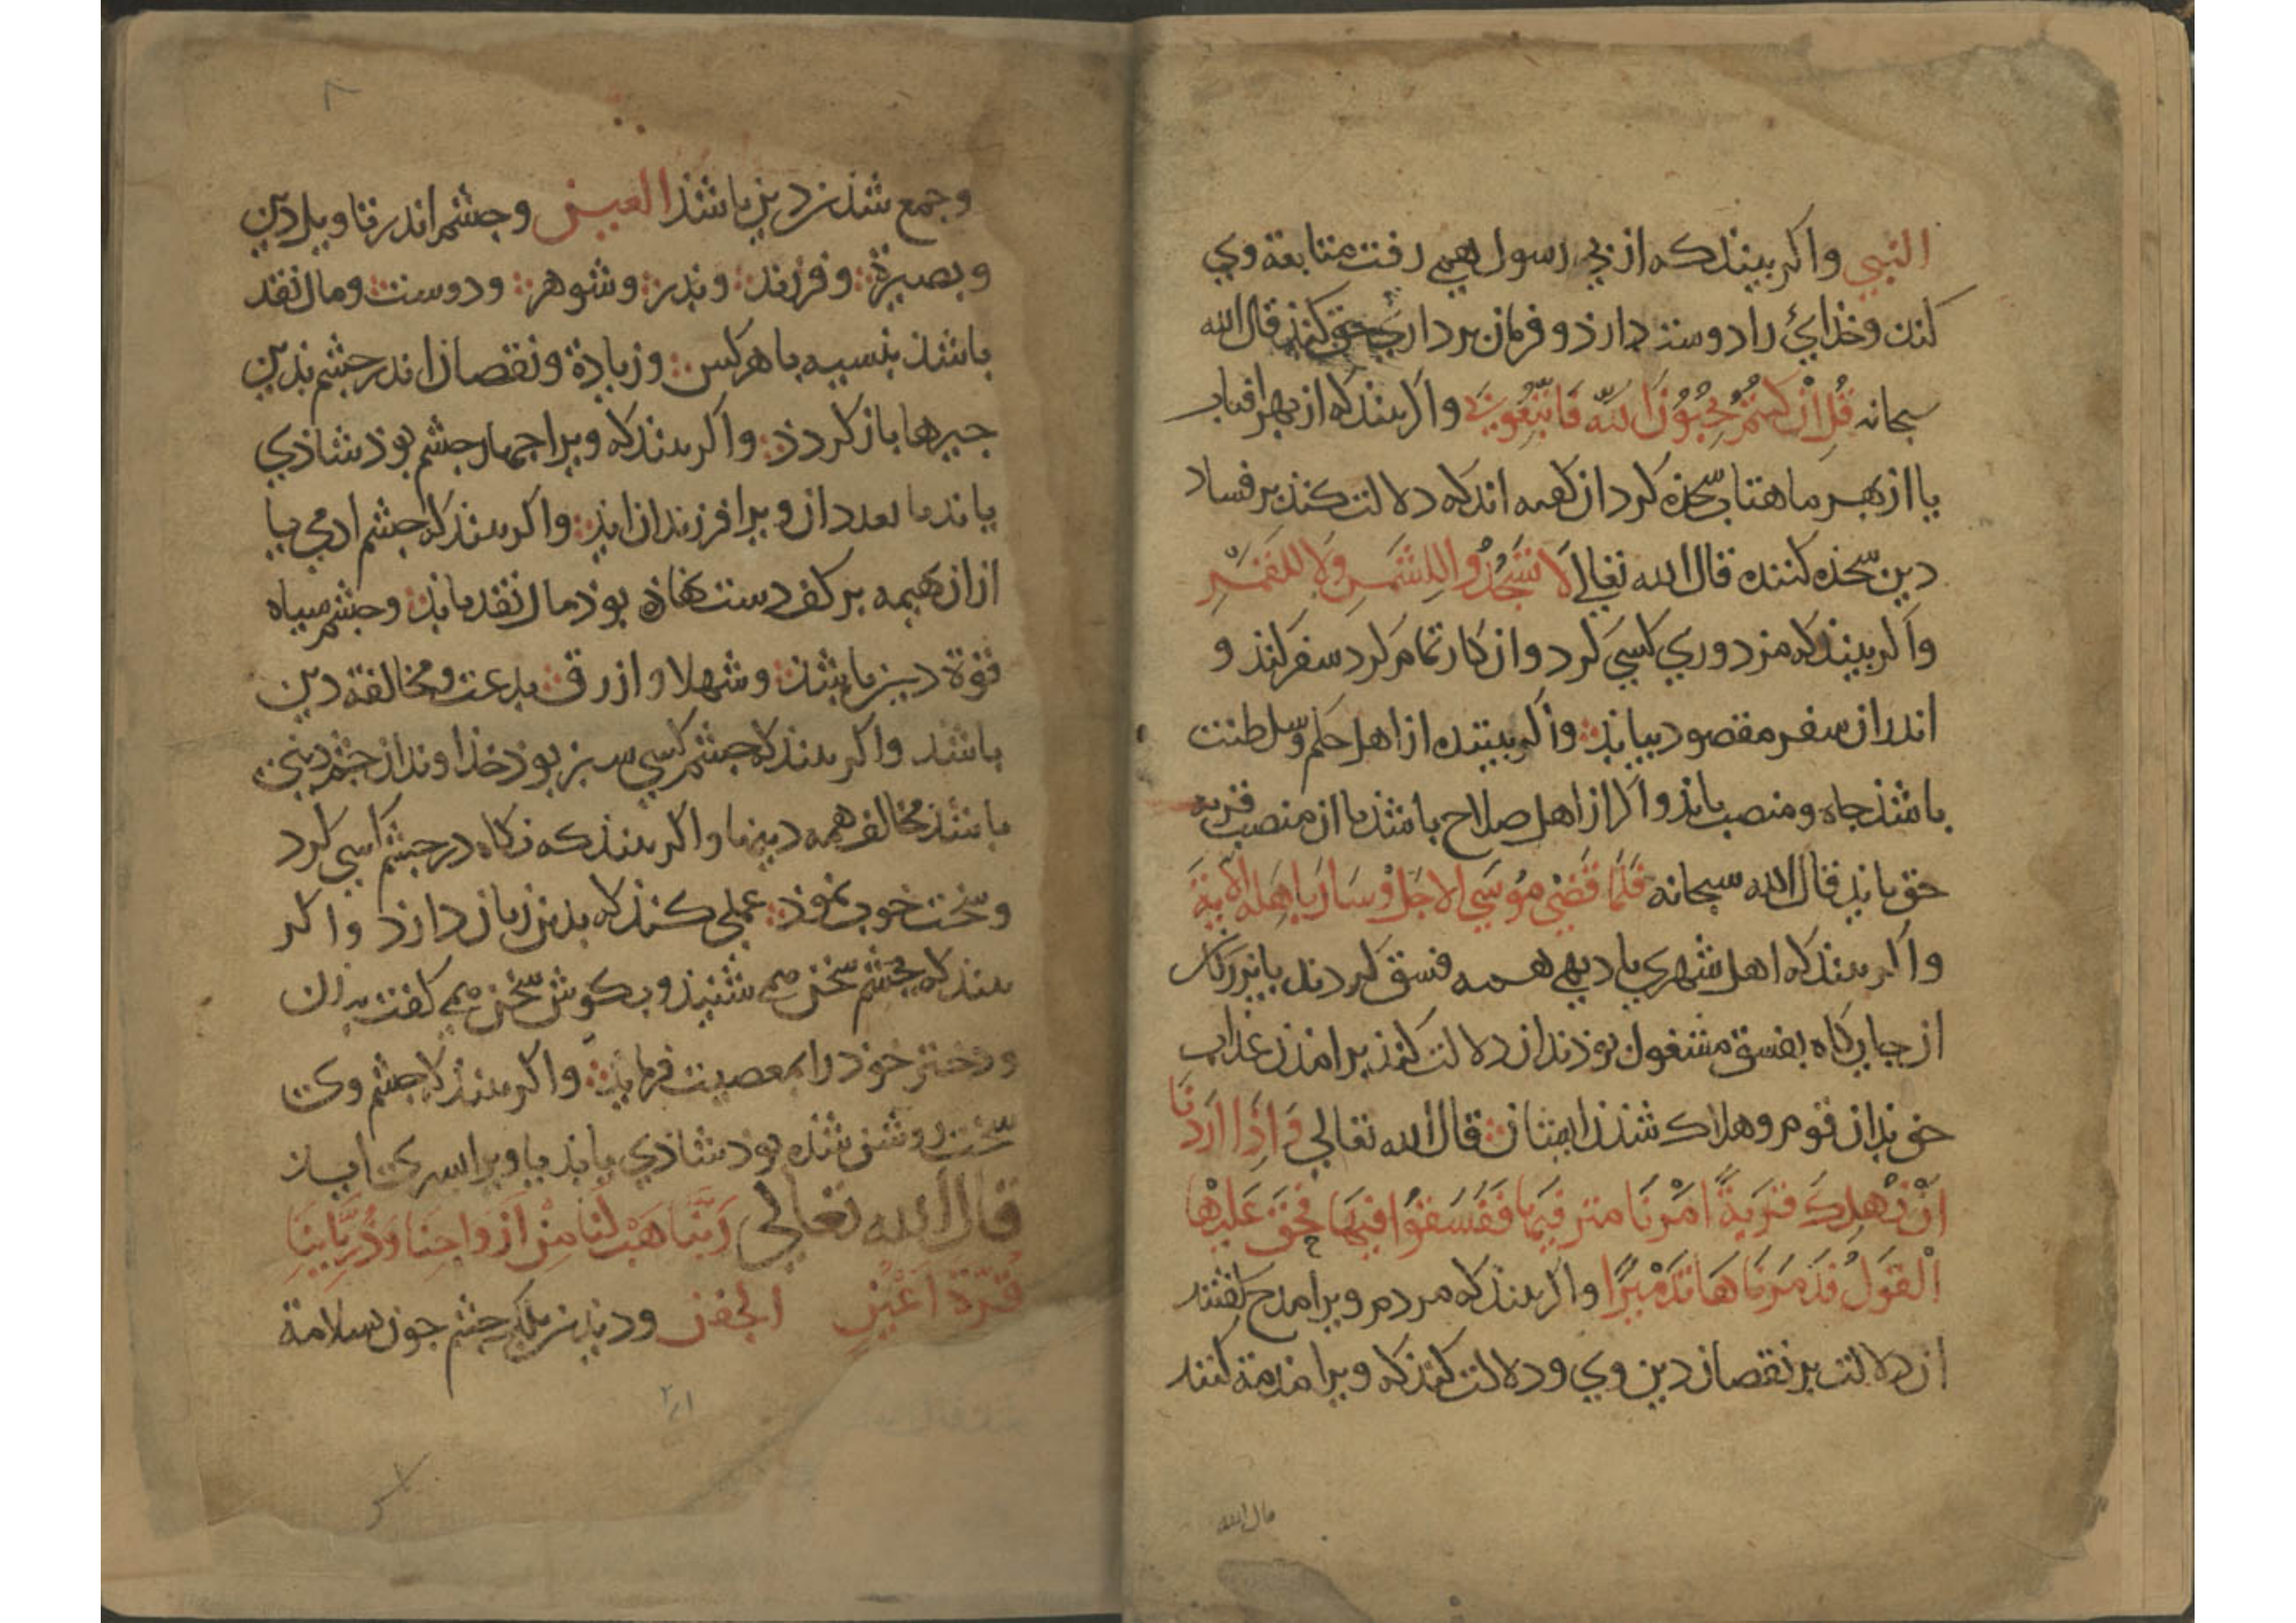 النبي واکر بیند که از پی رسول همی رفت متابعة وي
کند و خذایٔ را دوست دارذ و فرمان برداري حق کند قال الله
سبحانه قُل ان کنتُم تُحِبّوُنَ اللهَ فَاتَّبِعُونِي واکر بیند که از بهر افتاب
یا از بهر ماهتاب سجذه کرد ان کعبه اند که دلالت کند بر فساد
دین سجده کننده قال الله تعالی لَا تَسجُدُوا لِلشَمسِ وَلَا لِلقَمَرِ
واکر بیند که مزدوري کسي کرد و از کار تمام کرد سفر کند و
اندر ان سفر مقصود بیابذ واکر بیننده از اهل حکم و سلطنت
باشذ جاه و منصب یابذ و اکر از اهل صلاح باشذ یا از منصب قربه
حق یابذ قال الله سبحانه فَلَمّا قَضٰی مُوسَی الاجَلَ وَسَارَ بِاَهلِه الایَة
واکر بیند که اهل شهري یا دیهی همه فسق کردند یا بزرکان
از جایکاه بفسق مشغول بوذند ان دلالت کند بر امدن عذاب
حق بذان قوم و هلاک شذن ایشان قال الله تعالی وَاِذَا اَرَدنَا
اَن نُهلِكَ قَریَةً اَمَرنَا مترفیها فَفَسَقُوا فیهَا فَحَقَّ عَلَیهَا
القَولُ فَدَمَّرنَاهَا تَدمیرًا واکر بیند که مردم ویرا مدح کفتند
ان دلالت بر نقصان دین وي و دلالت کند که ویرا مذمة کنند
قال الله
۸
وجمع شذن دین باشذ العین وچشم اندر تاویل دین
وبصیرة وفرزند وپذر وشوهر ودوست ومال نقد
باشذ بنسبه با هر کس وزیادة ونقصان اندر چشم بذین
چیزها باز کردذ واکر بیند که ویرا چهار چشم بوذ شاذي
یابذ یا بعدد ان ویرا فرزندان ایذ واکر بیند که چشم ادمی یا
از ان بهیمه بر کف دست نهاذه بوذ مال نقد یابذ وچشم سیاه
قوة دین باشذ وشهلا و ازرق بدعت ومخالفة دین
باشد واکر بیند که چشم کسي سبز بوذ خذاوند ان چشم دینی
باشذ مخالف همه دینها واکر بیند که نکاه در چشم کسي کرد
وسخت خوب نموذ عملی کند که بدین زیان دارذ واکر
بیند که بچشم سخن می شنیذ وبکوش سخن می کفت بر زن
ودختر خوذ را بمعصیت فرمایذ واکر بیند که چشم وی
سخت روشن شذه بوذ شاذي یابذ یا ویرا پسری ایذ
قال الله تعالی رَبَّنَا هَب لَنَا مِن اَزوَاجِنَا وَذُرِّیَّاتِنَا
قُرَّة اَعیُنٍ الجفن و دیذن پلک چشم چون سلامة